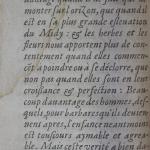 monter sur l'orizon, que quand il
est en sa plus grande eslevation
du Midy: & les herbes et les
fleurs nous apportent plus de con-
tentement quand elles commen-
cent à poindre ou à se declorre, que
non pas quand elles sont en leur
croissance & perfection: Beau-
coup davantage des hommes, des-
quels, pour barbares qu'ils devien-
nent apres, l'enfance neantmoins
est tousjours aymable et agrea-
ble. Mais ceste verité a bien da